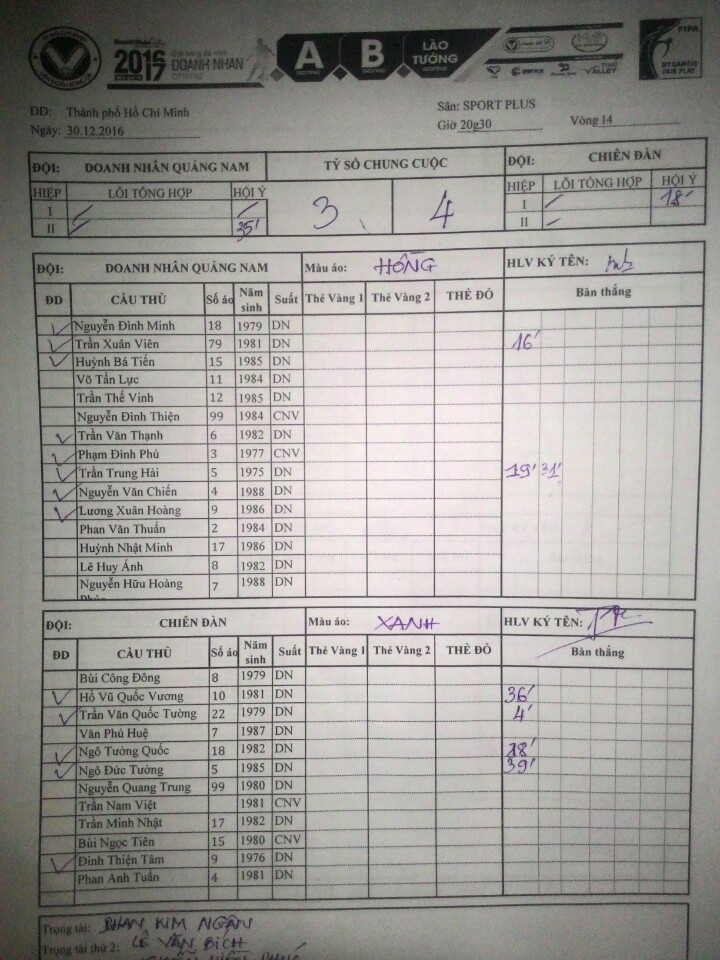 2016
2017 DOANH NHÂN
A B LÃO TƯỚNG
FIFA
VALLEY
ĐD: Thành phố Hồ Chí Minh
Sân: SPORT PLUS
Ngày: 30.12.2016 Giờ 20g30 Vòng 14
ĐỘI: DOANH NHÂN QUẢNG NAM TỶ SỐ CHUNG CUỘC ĐỘI: CHIẾN ĐÀN
HIỆP LỖI TỔNG HỢP HỘI Ý 3 4 HIỆP LỖI TỔNG HỢP HỘI Ý
I I 18'
II 35' II
ĐỘI: DOANH NHÂN QUẢNG NAM Màu áo: HỒNG HLV KÝ TÊN:
ĐD CẦU THỦ Số áo Năm sinh Suất Thẻ Vàng 1 Thẻ Vàng 2 THẺ ĐỎ Bàn thắng
Nguyễn Đình Minh 18 1979 DN
Trần Xuân Viên 79 1981 DN 16'
Huỳnh Bá Tiến 15 1985 DN
Võ Tấn Lực 11 1984 DN
Trần Thế Vinh 12 1985 DN
Nguyễn Đình Thiện 99 1984 CNV
Trần Văn Thạnh 6 1982 DN
Phạm Đình Phú 3 1977 CNV
Trần Trung Hải 5 1975 DN 19' 31'
Nguyễn Văn Chiến 4 1988 DN
Lương Xuân Hoàng 9 1986 DN
Phan Văn Thuấn 2 1984 DN
Huỳnh Nhật Minh 17 1986 DN
Lê Huy Ánh 8 1982 DN
Nguyễn Hữu Hoàng 7 1988 DN
ĐỘI: CHIẾN ĐÀN Màu áo: XANH HLV KÝ TÊN:
ĐD CẦU THỦ Số áo Năm sinh Suất Thẻ Vàng 1 Thẻ Vàng 2 THẺ ĐỎ Bàn thắng
Bùi Công Đông 8 1979 DN
Hồ Vũ Quốc Vương 10 1981 DN 36'
Trần Văn Quốc Tường 22 1979 DN 4'
Văn Phú Huệ 7 1987 DN
Ngô Tưởng Quốc 18 1982 DN
Ngô Đức Tưởng 5 1985 DN 39'
Nguyễn Quang Trung 99 1980 DN
Trần Nam Việt 1981 CNV
Trần Minh Nhật 17 1982 DN
Bùi Ngọc Tiên 15 1980 CNV
Đinh Thiện Tâm 9 1976 DN
Phan Anh Tuấn 4 1981 DN
Trọng tài: PHAN KIM NGÂN
Trọng tài thứ 2: LÊ VĂN BÍCH